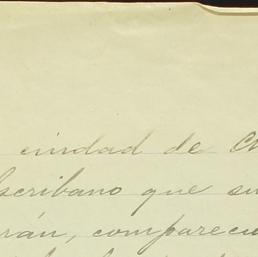 ciudad de
escribano que su
rán, comparecu